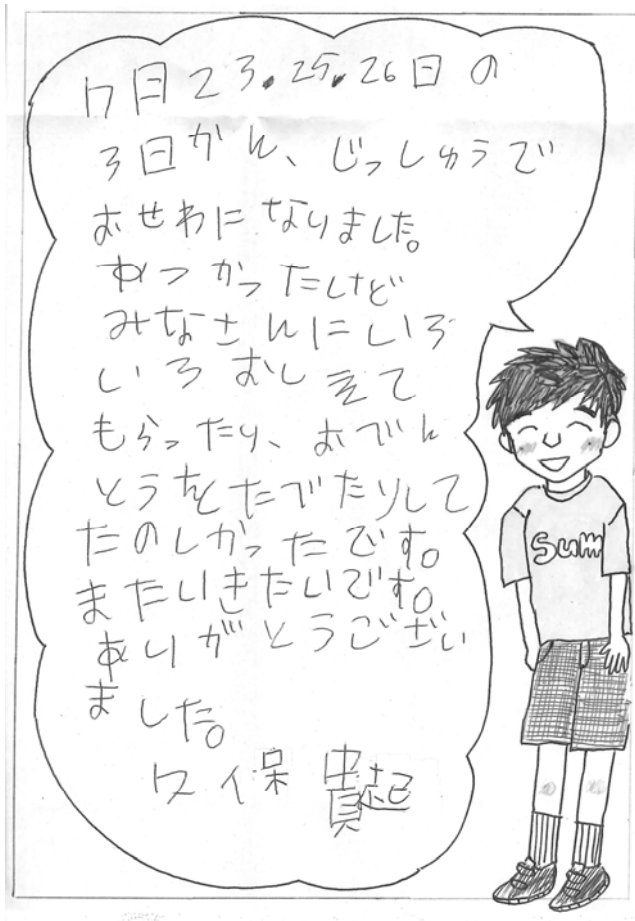 7日23.25.26日の
3日かん、じっしゅうで
おせわになりました。
あつかったけど
みなさんにいろ
いろおしえて
もらったり、おでん
とうをたでたりして
たのしかったです。
またいきたいです。
ありがとうござい
ました。
久保貴起
Sum